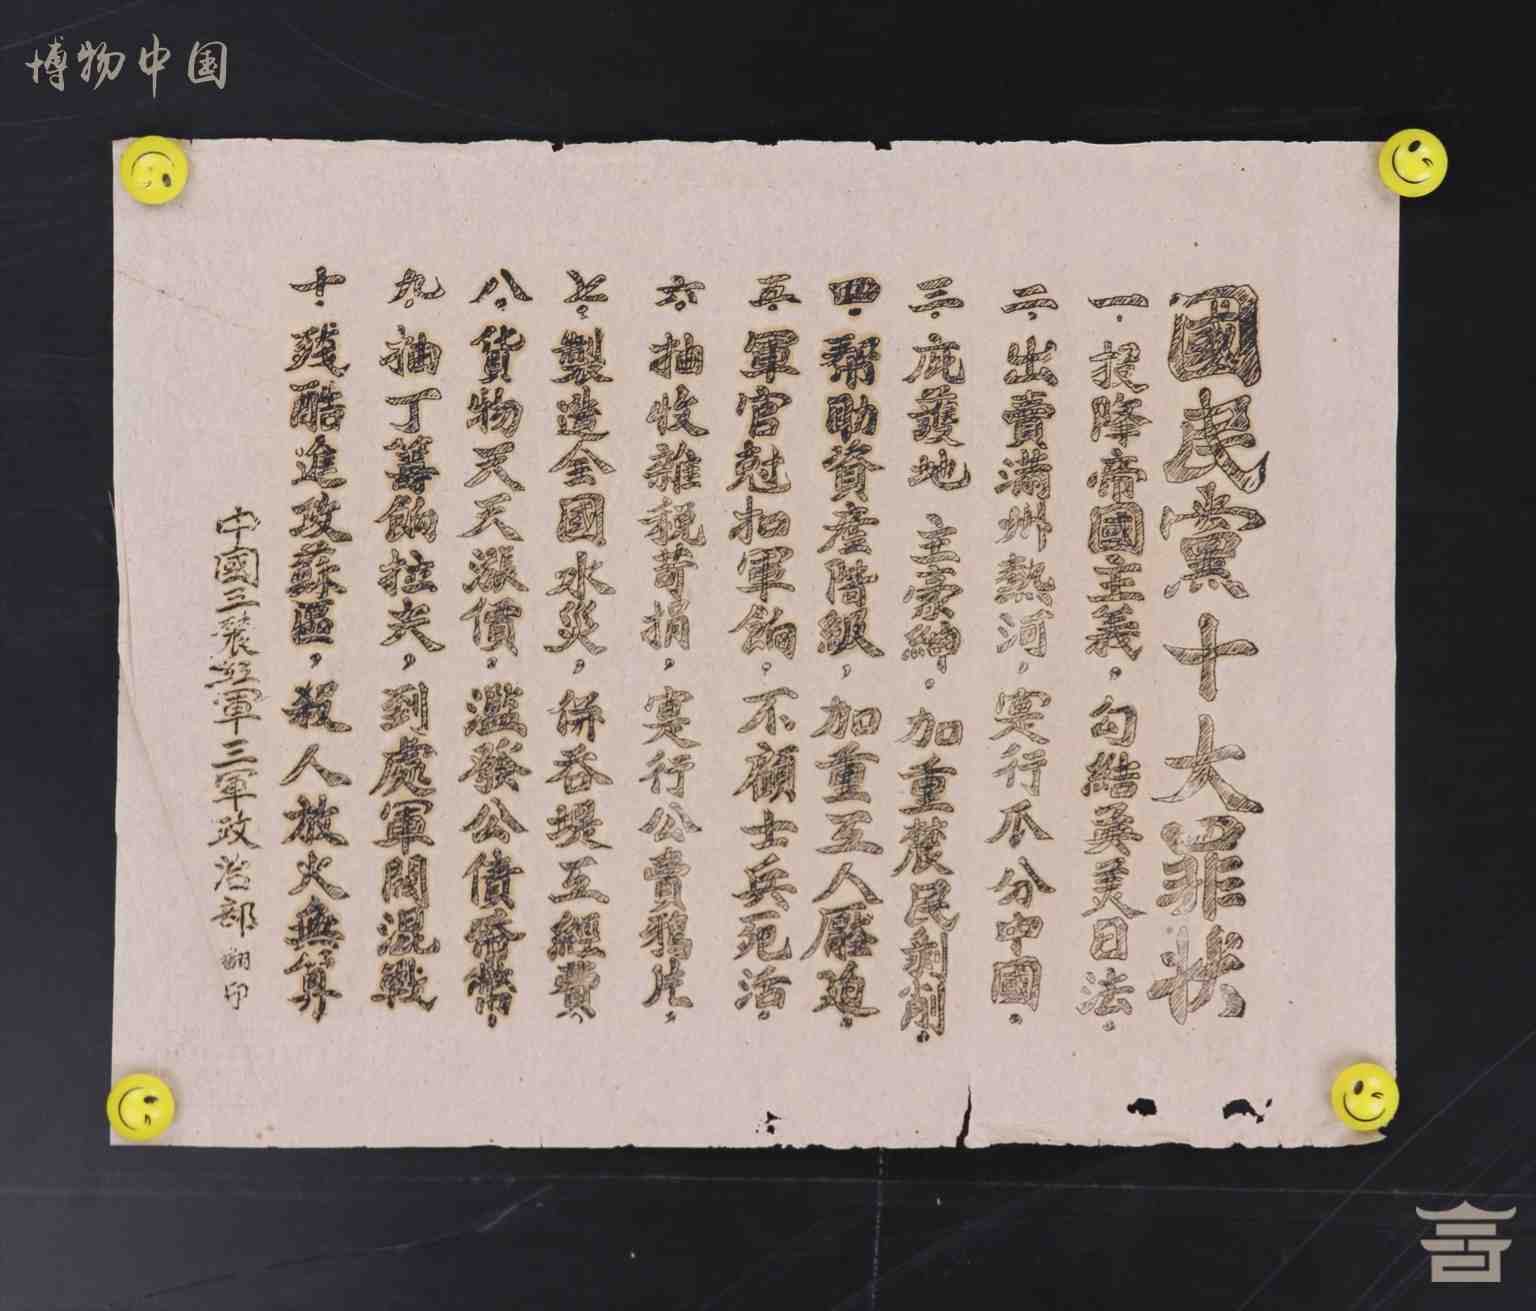 博物中国
國民黨十大罪状
一.投降帝國主義。勾結英美日法。
二.出賣满州熱河,實行瓜分中國。
三.庇護地主豪紳。加重農民剥削。
四.帮助資產階級,加重工人壓迫。
五.軍官尅扣軍餉。不顧士兵死活。
六.抽收雜税苛捐,實行公賣鴉片。
七.製造全國水災,併吞堤工經費。
八.貨物天天漲價。濫發公債帋幣。
九.抽丁籌餉拉夫,到處軍閥混戰
十.残酷進攻蘇區,殺人放火無算
中國工農紅軍三軍政治部翻印